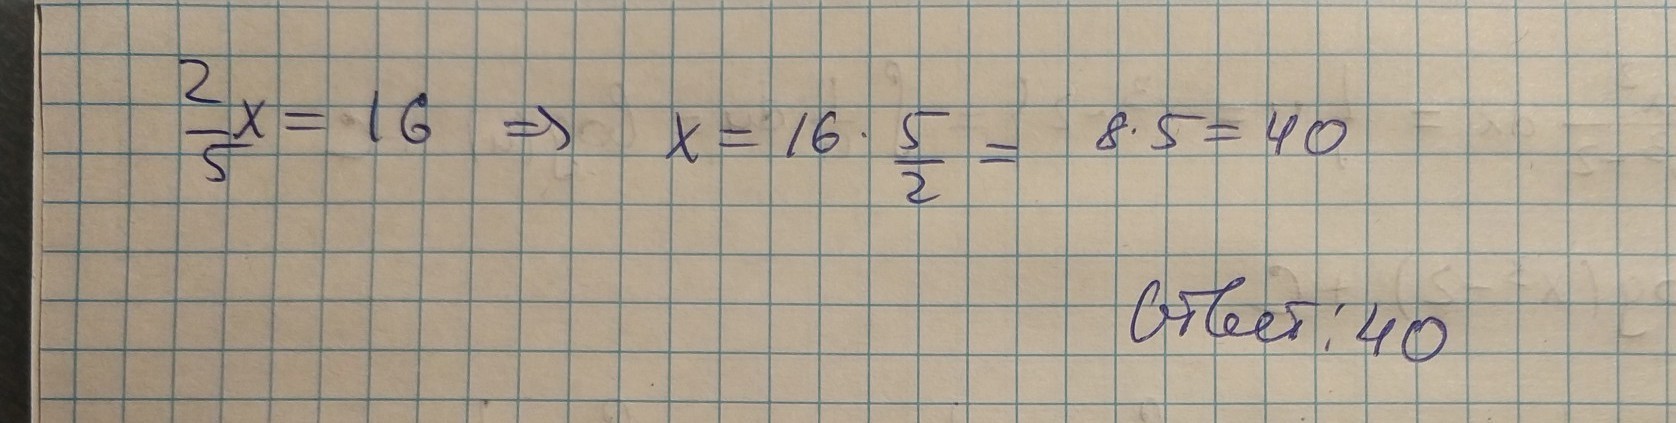 2/5 x = 16 ⇒ x = 16 · 5/2 = 8 · 5 = 40
Ответ: 40